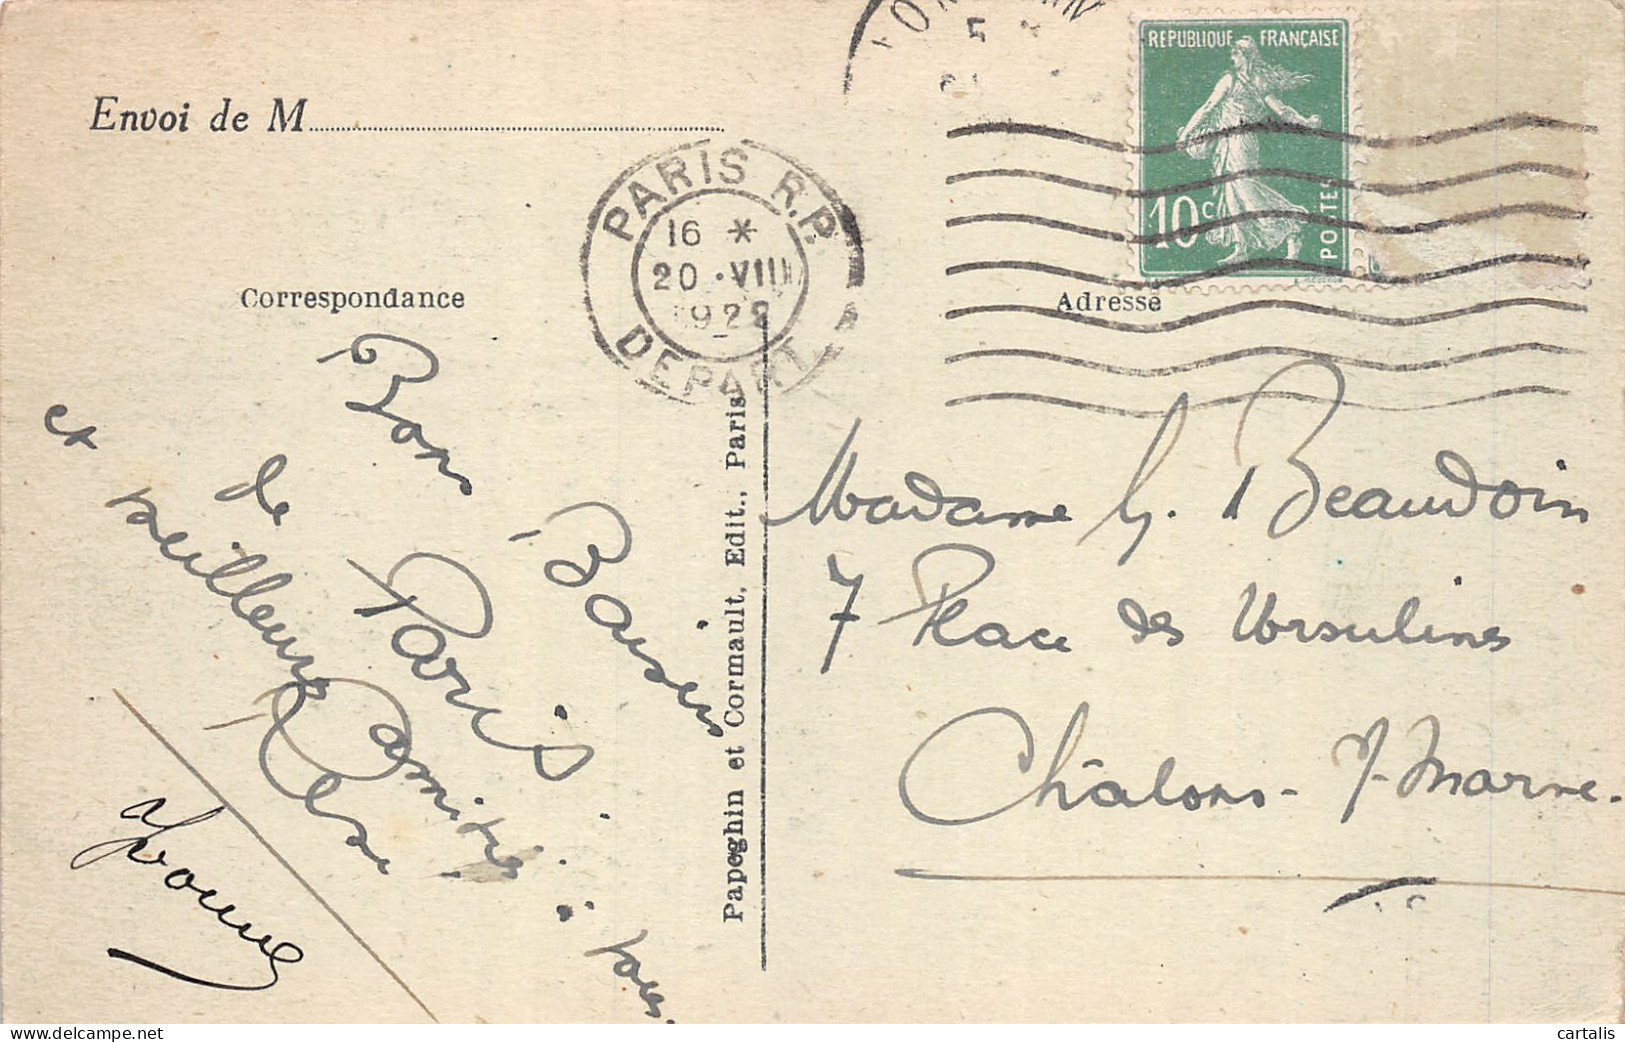 Envoi de M
REPUBLIQUE FRANÇAISE
10c
POSTES
PARIS R.P.
16 *
20 · VIII
1922
DEPART
Correspondance
Adresse
Bons Baisers
de Paris
et meilleures
Amitiés
Yvonne
Papeghin et Cormault, Edit., Paris
Madame G. Beaudoin
7 Place des Ursulines
Châlons-s/-Marne.
www.delcampe.net
cartalis